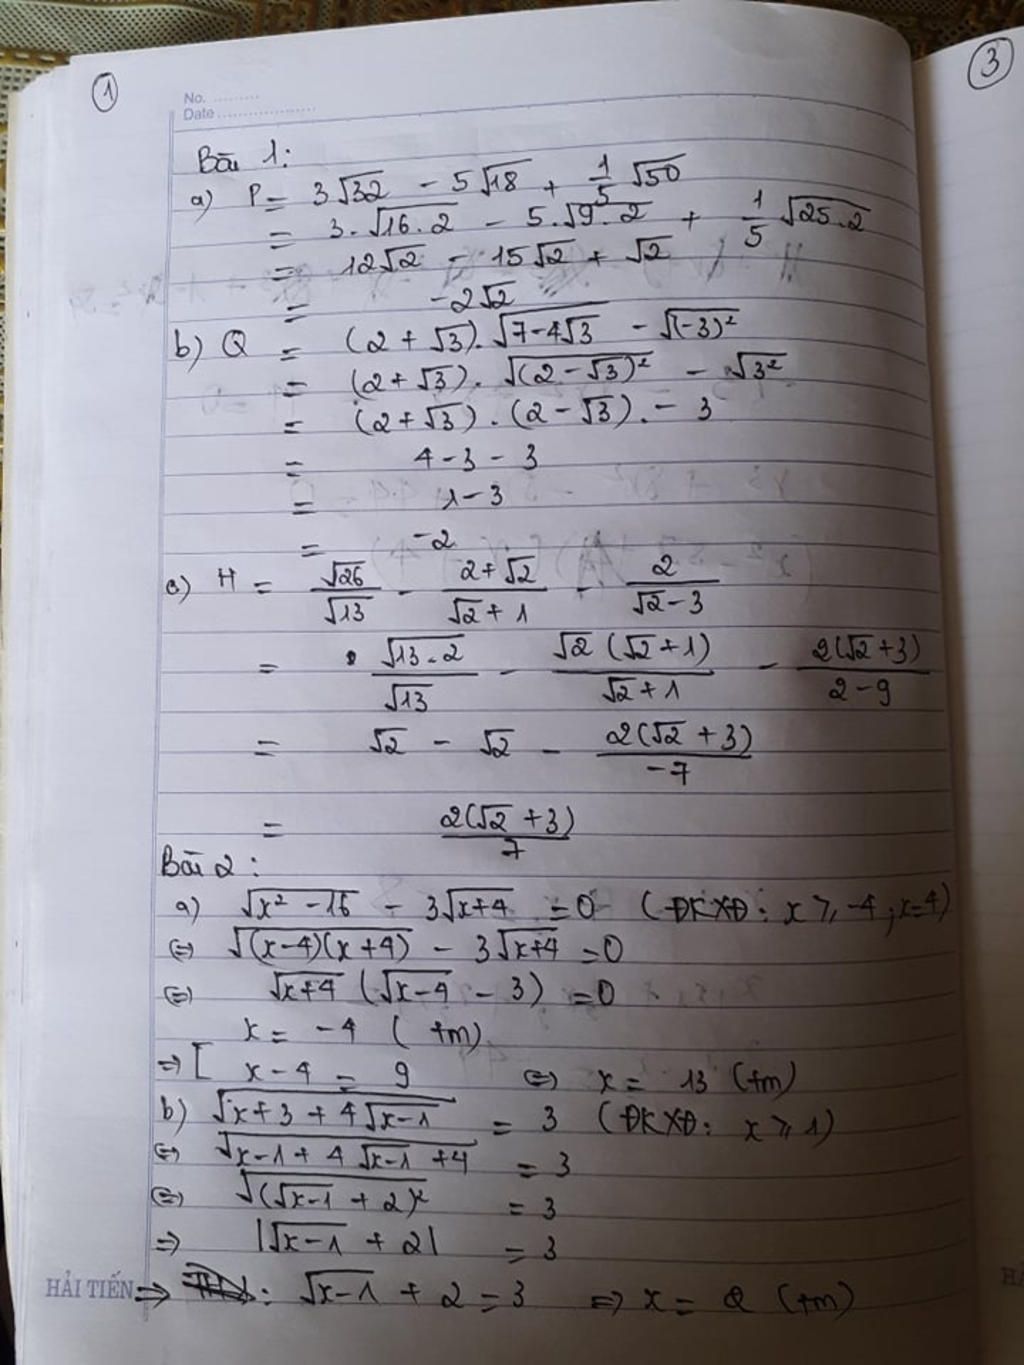 1
3
No. ..........
Date ..................
Bài 1:
a) P = 3√32 - 5√18 + 1/5 √50
= 3.√16.2 - 5.√9.2 + 1/5 √25.2
= 12√2 - 15√2 + √2
= -2√2
b) Q = (2 + √3).√(7-4√3) - √(-3)²
= (2+√3).√(2-√3)² - √3²
= (2+√3).(2-√3). - 3
= 4-3-3
= 1-3
= -2
c) H = √26/√13 - (2+√2)/(√2+1) - 2/(√2-3)
= √13.2/√13 - √2(√2+1)/(√2+1) - 2(√2+3)/(2-9)
= √2 - √2 - 2(√2+3)/-7
= 2(√2+3)/7
Bài 2:
a) √(x²-16) - 3√(x+4) = 0 (ĐKXĐ: x ≥ -4; x=4)
⇔ √((x-4)(x+4)) - 3√(x+4) = 0
⇔ √(x+4) (√(x-4) - 3) = 0
x = -4 (tm)
⇒ [ x-4 = 9 ⇔ x = 13 (tm)
b) √(x+3+4√(x-1)) = 3 (ĐKXĐ: x ≥ 1)
⇔ √(x-1+4√(x-1)+4) = 3
⇔ √(√(x-1)+2)² = 3
⇒ |√(x-1)+2| = 3
⇒ : √(x-1)+2=3 ⇒ x = 2 (tm)
HẢI TIẾN